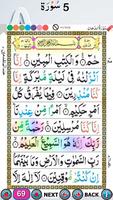 5 سُوْرَة
حٰمٓ وَالْكِتٰبِ الْمُبِيْنِ اِنَّآ
اَنْزَلْنٰهُ فِيْ لَيْلَةٍ مُّبٰرَكَةٍ اِنَّا
كُنَّا مُنْذِرِيْنَ فِيْهَا يُفْرَقُ كُلُّ
اَمْرٍ حَكِيْمٍ اَمْرًا مِّنْ عِنْدِنَا
اِنَّا كُنَّا مُرْسِلِيْنَ رَحْمَةً مِّنْ
رَّبِّكَ اِنَّهٗ هُوَ السَّمِيْعُ الْعَلِيْمُ
رَبِّ السَّمٰوٰتِ وَالْاَرْضِ وَمَا
بَيْنَهُمَا اِنْ كُنْتُمْ مُّوْقِنِيْنَ
69 NEXT BACK